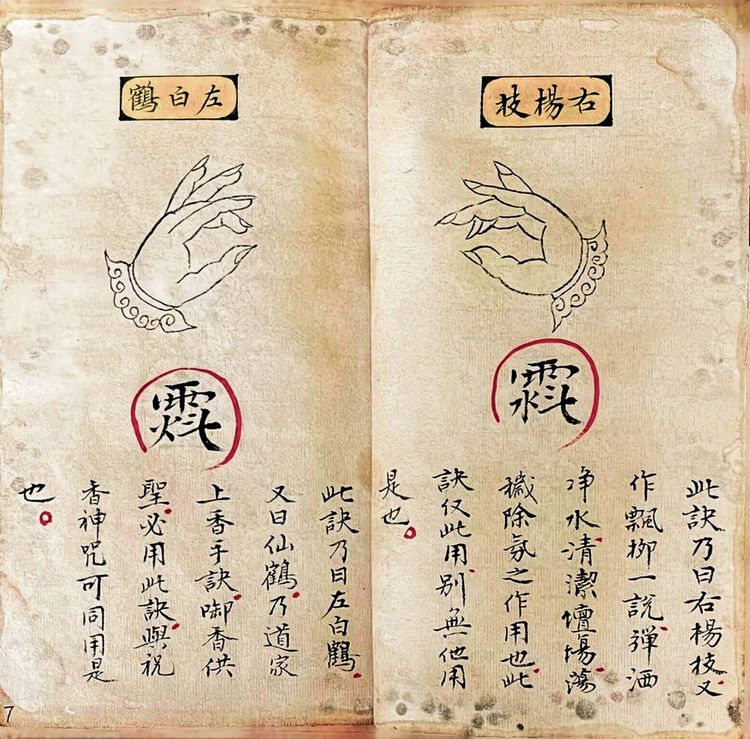 右楊枝
此訣乃曰右楊枝又
作飄柳一說彈洒
净水清潔壇場蕩
穢除氛之作用也此
訣仅此用別無他用
是也。
左白鶴
此訣乃曰左白鶴
又曰仙鶴乃道家
上香手訣啣香供
聖必用此訣與祝
香神咒可同用是
也。
7